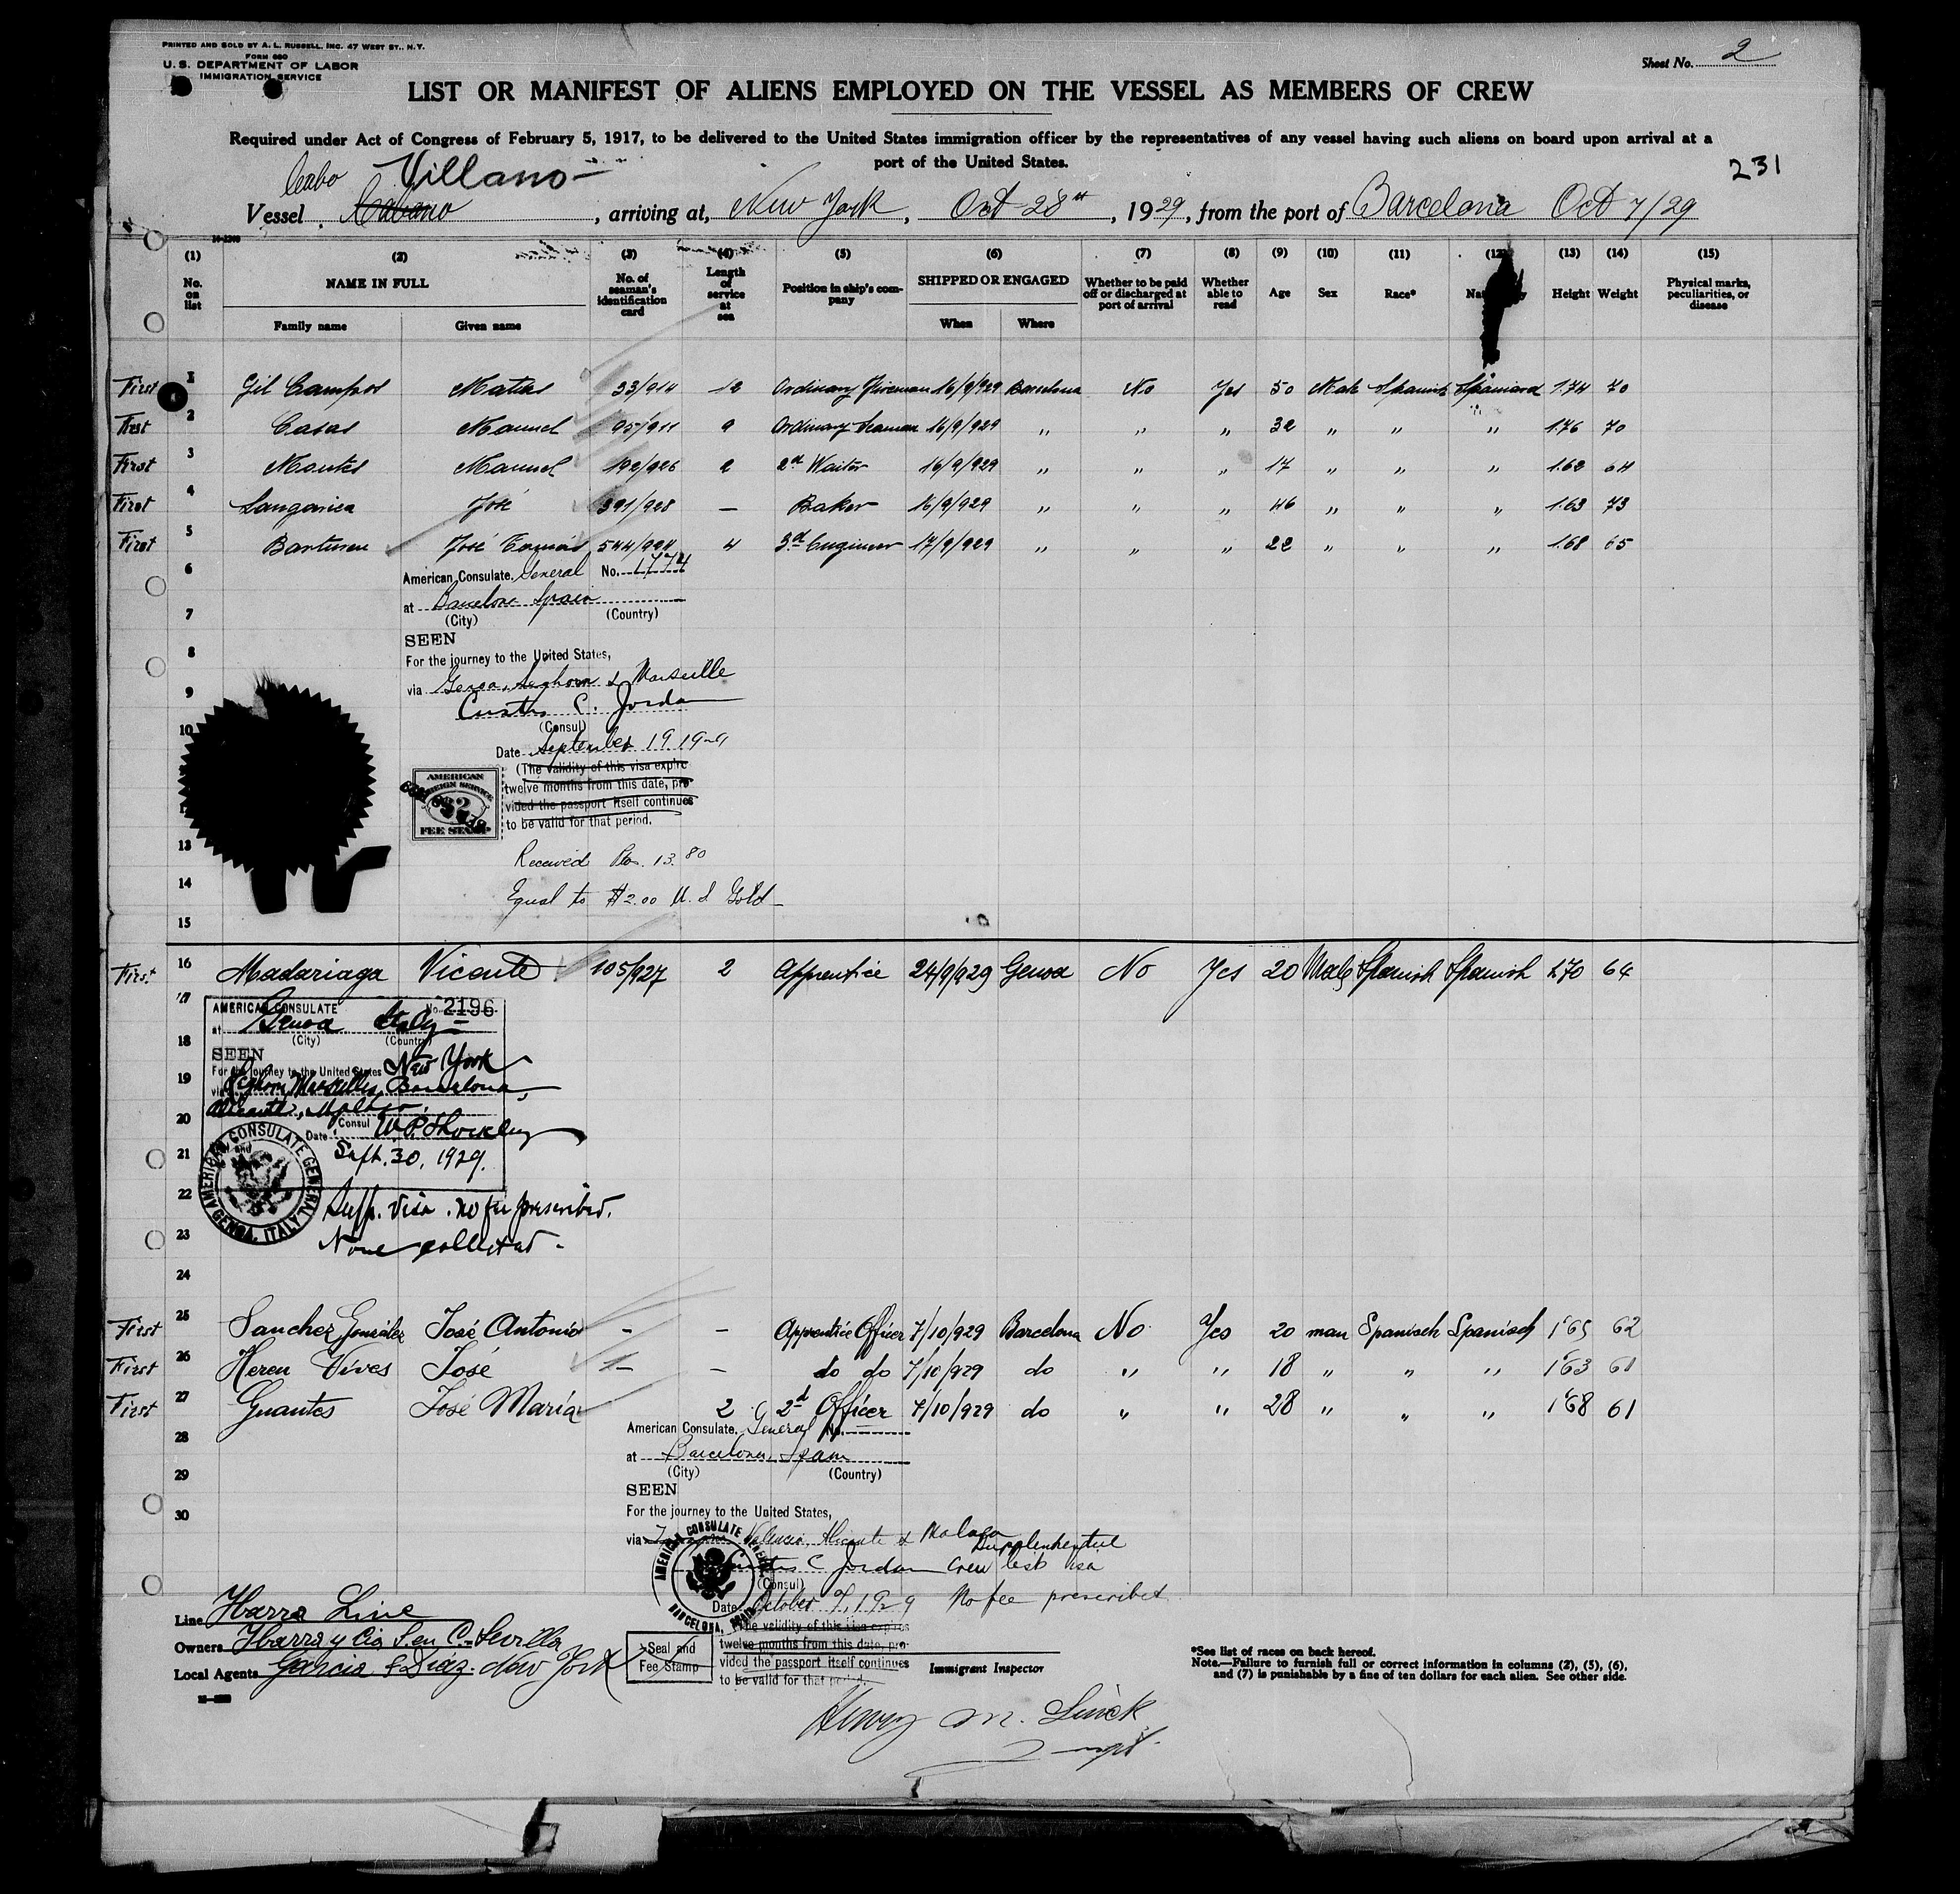 PRINTED AND SOLD BY A. L. RUSSELL, INC. 47 WEST ST., N.Y.
FORM 680
U. S. DEPARTMENT OF LABOR
IMMIGRATION SERVICE
Sheet No. 2
LIST OR MANIFEST OF ALIENS EMPLOYED ON THE VESSEL AS MEMBERS OF CREW
Required under Act of Congress of February 5, 1917, to be delivered to the United States immigration officer by the representatives of any vessel having such aliens on board upon arrival at a
port of the United States.
231
Cabo Villano
Vessel, arriving at, New York, Oct 28th, 1929, from the port of Barcelona Oct 7/29
(1) (2) (3) (4) (5) (6) (7) (8) (9) (10) (11) (12) (13) (14) (15)
No. on list NAME IN FULL No. of seaman's identification card Length of service at sea Position in ship's company SHIPPED OR ENGAGED Whether to be paid off or discharged at port of arrival Whether able to read Age Sex Race* Height Weight Physical marks, peculiarities, or disease
Family name Given name When Where
First 1 Gil Campos Matias 23/914 12 Ordinary Fireman 16/9/929 Barcelona No Yes 50 Male Spanish Spaniard 1.74 70
First 2 Casas Manuel 95/911 9 Ordinary Seaman 16/9/929 " " " 32 " " " 1.76 70
First 3 Montes Manuel 192/926 2 2d Waiter 16/9/929 " " " 17 " " " 1.62 64
First 4 José 391/928 — Baker 16/9/929 " " " 46 " " " 1.63 73
First 5 José 544/924 4 3d Engineer 17/9/929 " " " 22 " " " 1.68 65
6
American Consulate General No. 1774
7
at Barcelona Spain
(City) (Country)
SEEN
8
For the journey to the United States,
9
via Genoa, Leghorn & Marseille
Curtis C. Jordan
10
(Consul)
Date September 19 1929
(The validity of this visa expire
twelve months from this date, pro-
vided the passport itself continues
to be valid for that period.
AMERICAN
FOREIGN SERVICE
2
FEE STAMP
13
Received Pts. 13.80
14
Equal to $2.00 U. S Gold
15
First 16 Madariaga Vicente 105/927 2 Apprentice 24/9/929 Genoa No Yes 20 Male Spanish Spanish 1.70 64
17
AMERICAN CONSULATE No. 2196
at Genoa Italy
18
(City) (Country)
SEEN
For the journey to the United States New York
19
via Leghorn, Marseilles, Barcelona,
Alicante, Malaga.
20
Consul W. P. Shockley
Date
21
Sept. 30, 1929.
AMERICAN CONSULATE GENERAL
GENOA, ITALY
22
Supp. Visa. No fee prescribed.
23
None collected.
24
First 25 Sanchez González José Antonio - - Apprentice Officer 7/10/929 Barcelona No Yes 20 man Spanisch Spanisch 1'65 62
First 26 Heren Vives José - - do do 7/10/929 do " " 18 " " " 1'63 61
First 27 Guantes José María 2 2d Officer 7/10/929 do " " 28 " " " 1'68 61
28
American Consulate General No.
at Barcelona, Spain
29
(City) (Country)
SEEN
30
For the journey to the United States,
via Valencia, Alicante & Malaga
Supplemental
Curtis C Jordan crew list visa
(Consul)
Date October 7, 1929 No fee prescribed
AMERICAN CONSULATE GENERAL
BARCELONA, SPAIN
The validity of this visa expires
twelve months from this date, pro-
vided the passport itself continues
to be valid for that period.
Seal and
Fee Stamp
Line Ybarra Line
Owners Ybarra y Cia S. en C. - Sevilla
Local Agents Garcia & Diaz. New York
Immigrant Inspector
*See list of races on back hereof.
Note.—Failure to furnish full or correct information in columns (2), (5), (6),
and (7) is punishable by a fine of ten dollars for each alien. See other side.
Henry M.